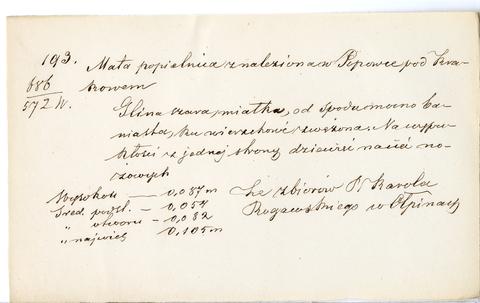 193. Mała popielnica znaleziona w Popowce pod Kra-
686
572 W.
kowem
Glina szara, miałka, od spodu mocno ba-
niasta, ku wierzchowi zwężona. Na wypu-
kłości z jednej strony dziewięć nacięć no-
żowych
Wysokość — 0,087 m
Śred. podst. — 0,054
" otworu — 0,082
" najwięk. 0,105 m
Ze zbiorów P. Karola
Rogawskiego w Ołpinach